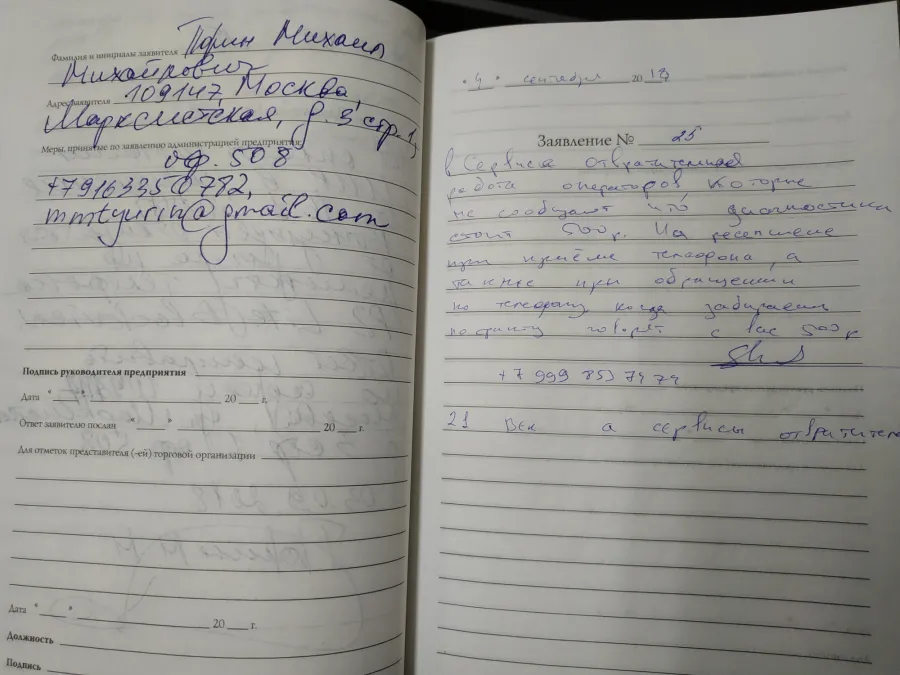 Фамилия и инициалы заявителя Тюрин Михаил
Михайлович
Адрес заявителя 109147, Москва,
Марксистская, д. 3 стр. 1,
Меры, принятые по заявлению администрацией предприятия:
оф. 508
+79163350782,
mmtyurin@gmail.com
Подпись руководителя предприятия
Дата " " 20 г.
Ответ заявителю послан " " 20 г.
Для отметок представителя (-ей) торговой организации
Дата " " 20 г.
Должность
Подпись
" 4 " сентября 2018
Заявление № 25
в Сервисе отвратительная
работа операторов, которые
не сообщают что диагностика
стоит 500р. На ресепшене
при приёме телефона, а
также при обращении
по телефону когда забираем
говорят с вас 500р
+7 999 853 74 74
21 век а сервисы отвратитель